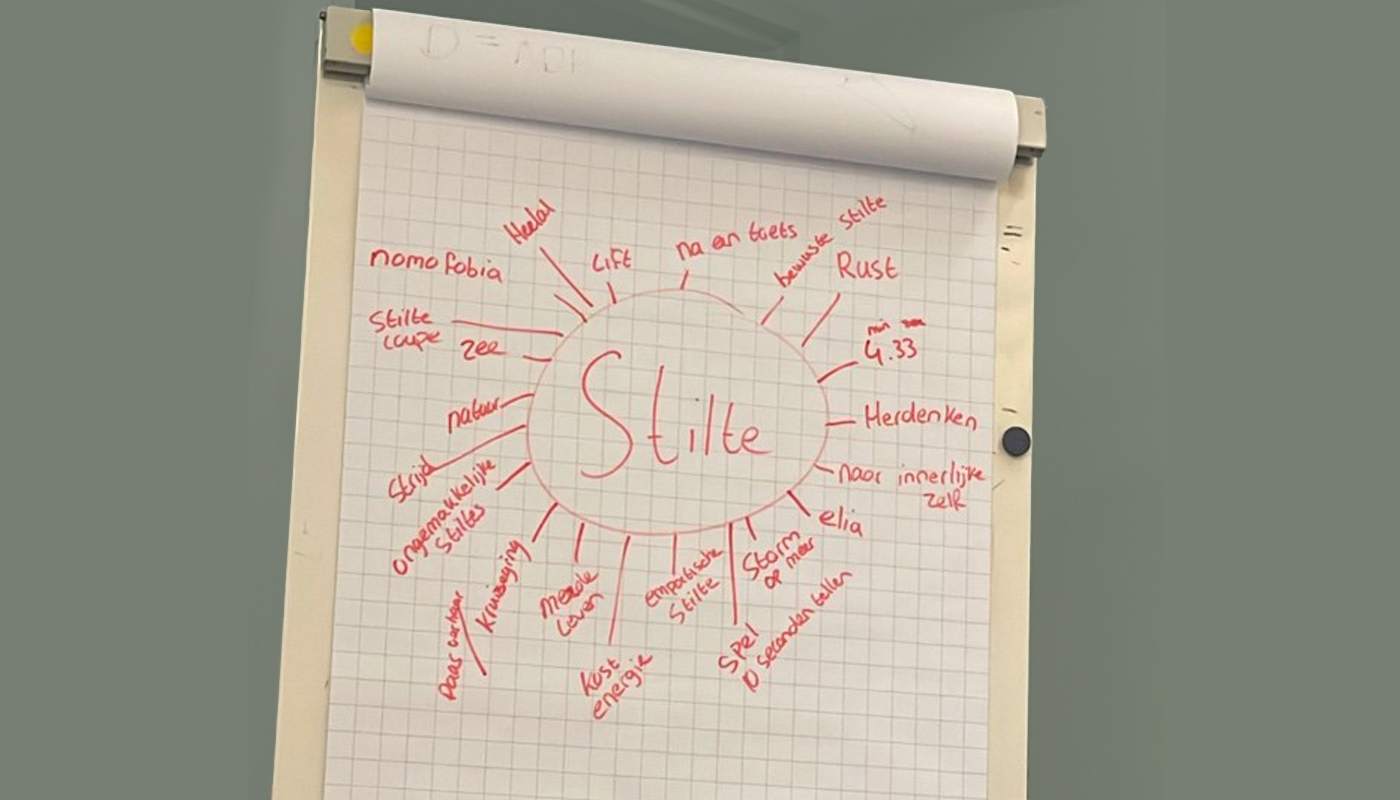 Stilte
Heelal
Lift
na een toets
bewuste stilte
Rust
nomofobia
min sec
4.33
Stilte
coupe
zee
Herdenken
natuur
naar innerlijke
zelf
Strijd
elia
ongemakkelijke
Stiltes
Storm
op meer
kruiseging
Paas verhaal
mede
Leven
Stilte
Spel
10 seconden tellen
kost
energie